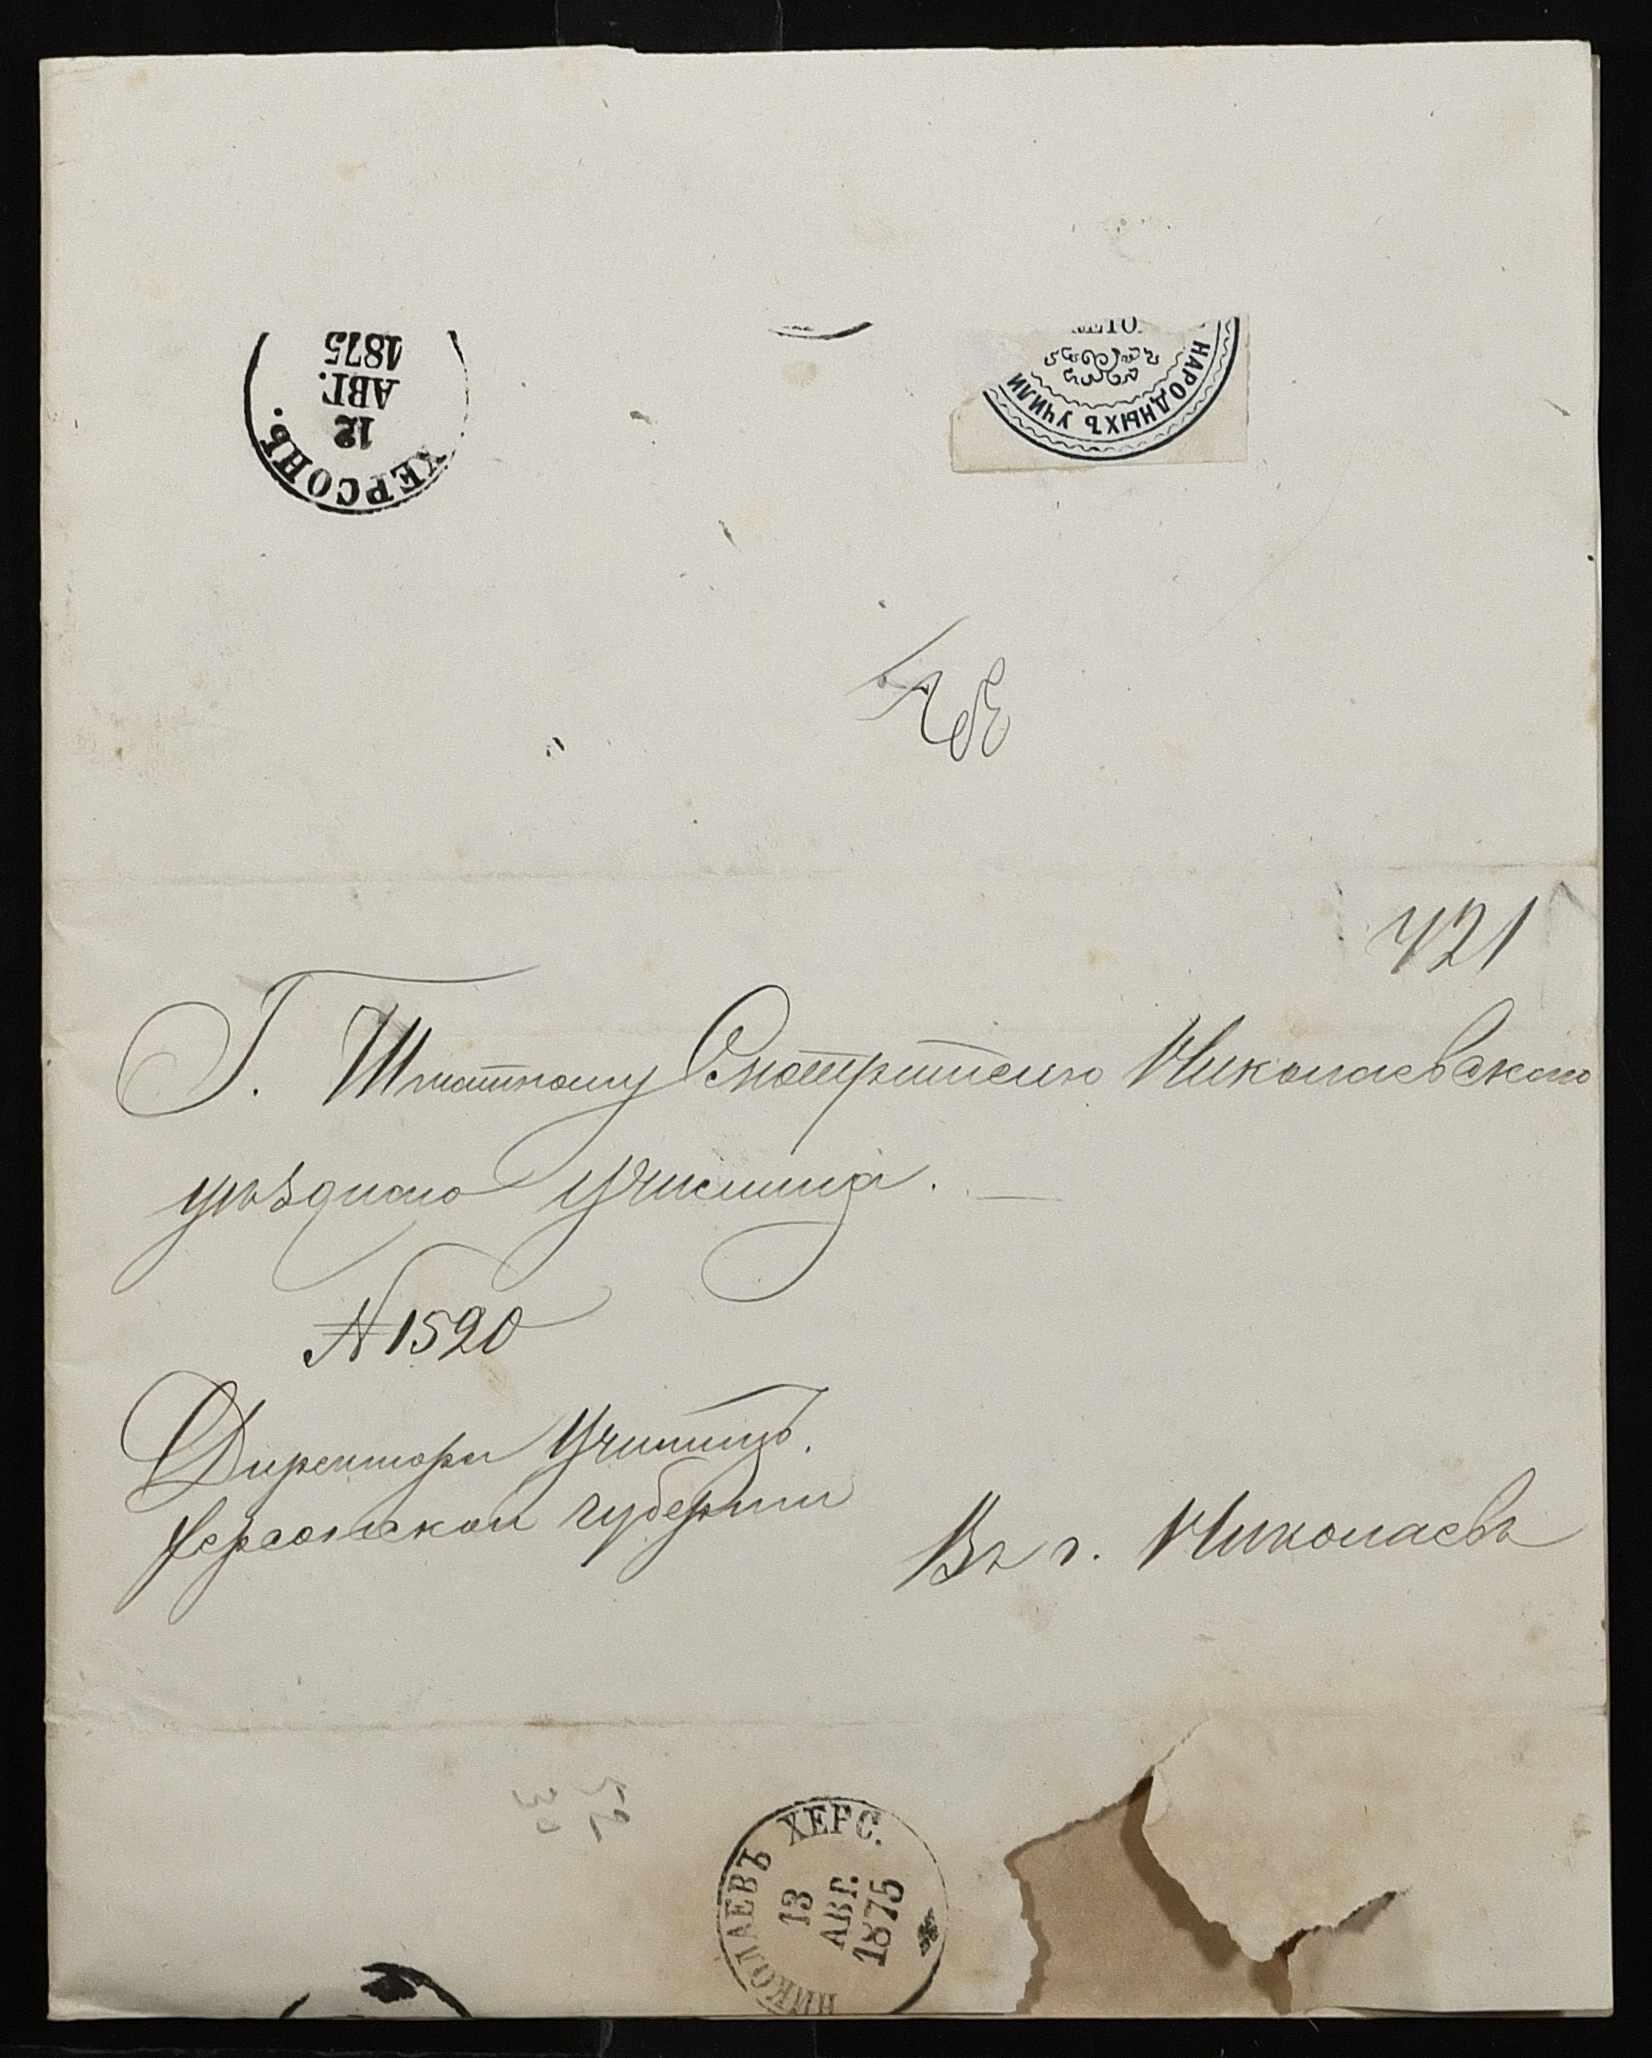 ХЕРСОНЬ.
12
АВГ.
1875
НАРОДНЫХЪ УЧИЛИ
421
Г. Штатному Смотрителю Николаевскаго
уѣзднаго училища.
№ 1520
Директоръ Училищъ.
Херсонской губерніи
Въ г. Николаевъ
НИКОЛАЕВЪ ХЕРС.
13
АВГ.
1875